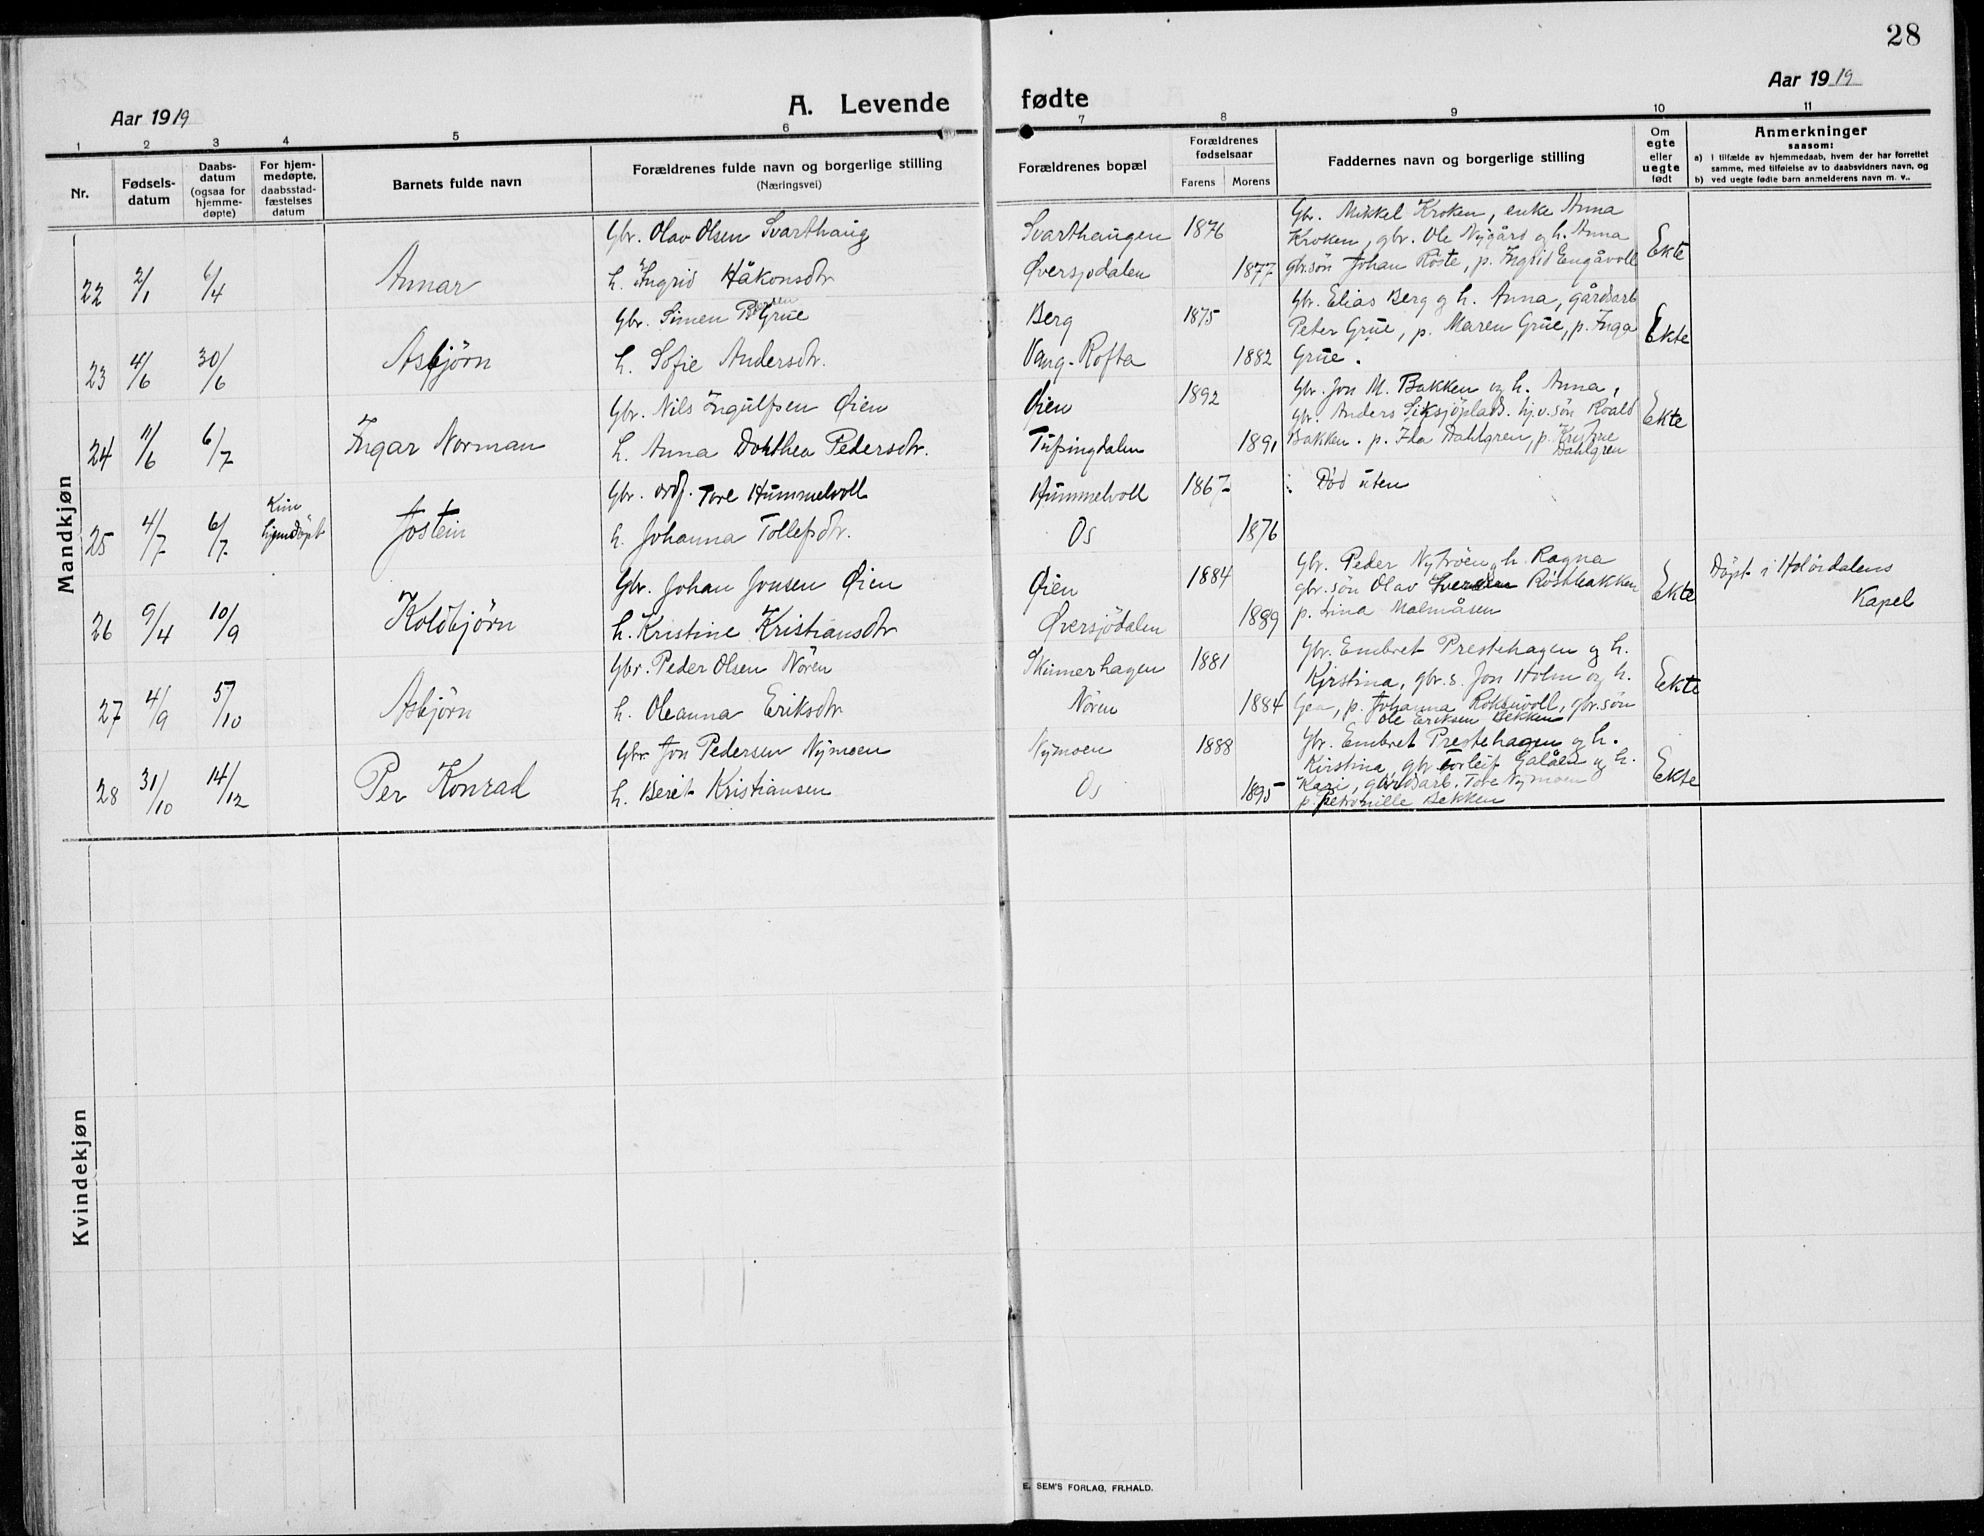 28
Aar 1919
A. Levende fødte
Aar 1919
1 2 3 4 5 6 7 8 9 10 11
Nr.
Fødsels-datum
Daabs-datum (ogsaa for hjemme-døpte)
For hjem-medøpte, daabsstad-fæstelses datum
Barnets fulde navn
Forældrenes fulde navn og borgerlige stilling
(Næringsvei)
Forældrenes bopæl
Forældrenes fødselsaar
Farens Morens
Faddernes navn og borgerlige stilling
Om egte eller uegte født
Anmerkninger
saasom:
a) i tilfælde av hjemmedaab, hvem der har forrettet samme, med tilføielse av to daabsvidners navn, og
b) ved uegte fødte barn anmelderens navn m. v..
Mandkjøn
Gbr. Olav Olsen Svarthaug Svarthaugen 1876 Gbr. Mikkel Kroken, enke Anna
Kroken, gbr. Ole Nygård og h. Anna Ekte
22 2/1 6/4 Annar h. Ingrid Håkonsdtr Øversjødalen 1877 gbr.søn Johan Røste, p. Ingrid Engåvoll
Gbr. Simen Grue Berg 1875 Gbr. Elias Berg og h. Anna, gårdsarb
Peter Grue, p. Maren Grue, p. Inga Ekte
23 4/6 30/6 Asbjörn h. Sofie Andersdtr. Vang-Rofta 1882 Grue.
Gbr. Nils Ingulfsen Øien Øien 1892 Gbr. Jon M. Bakken og h. Anna,
gbr. Anders Siksjöplads. hj.v.søn Roald Ekte
24 11/6 6/7 Ingar Norman h. Anna Dorthea Pedersdtr. Tufsingdalen 1891 Bakken. p. Ida Dahlgren, p. Kristine Dahlgren
Gbr. ordf. Tore Hummelvoll Hummelvoll 1867 Død uten
25 4/7 6/7 Kun hjemdöpt Jostein h. Johanna Tollefsdtr. Os 1876
Gbr. Johan Jonsen Øien Øien 1884 Gbr. Peder Nytrøen og h. Ragna
gbr.søn Olav Røstbakken Ekte Döpt i Holöidalens
26 9/4 10/9 Kolbjörn h. Kristine Kristiansdtr Øversjödalen 1889 p. Lina Malmåsen Kapel
Gbr. Peder Olsen Nören Skinnerhagen 1881 Gbr. Embret Prestehagen og h.
Kirstina, gbr. s. Jon Holm og h. Ekte
27 4/9 5/10 Asbjörn h. Oleanna Eriksdtr Nören 1884 Gea, p. Johanna Rokkuvoll, gbr.søn
Ole Eriksen Bekken
Gbr. Jon Pedersen Nymoen Nymoen 1888 Gbr. Embret Prestehagen og h.
Kirstina, gbr. Torleif Galåen og h.
28 31/10 14/12 Per Konrad h. Berit Kristiansen Os 1895 Kari, gårdsarb. Tore Nymoen Ekte
p. Petronille Bekken
Kvindekjøn
E. SEM'S FORLAG, FR.HALD.